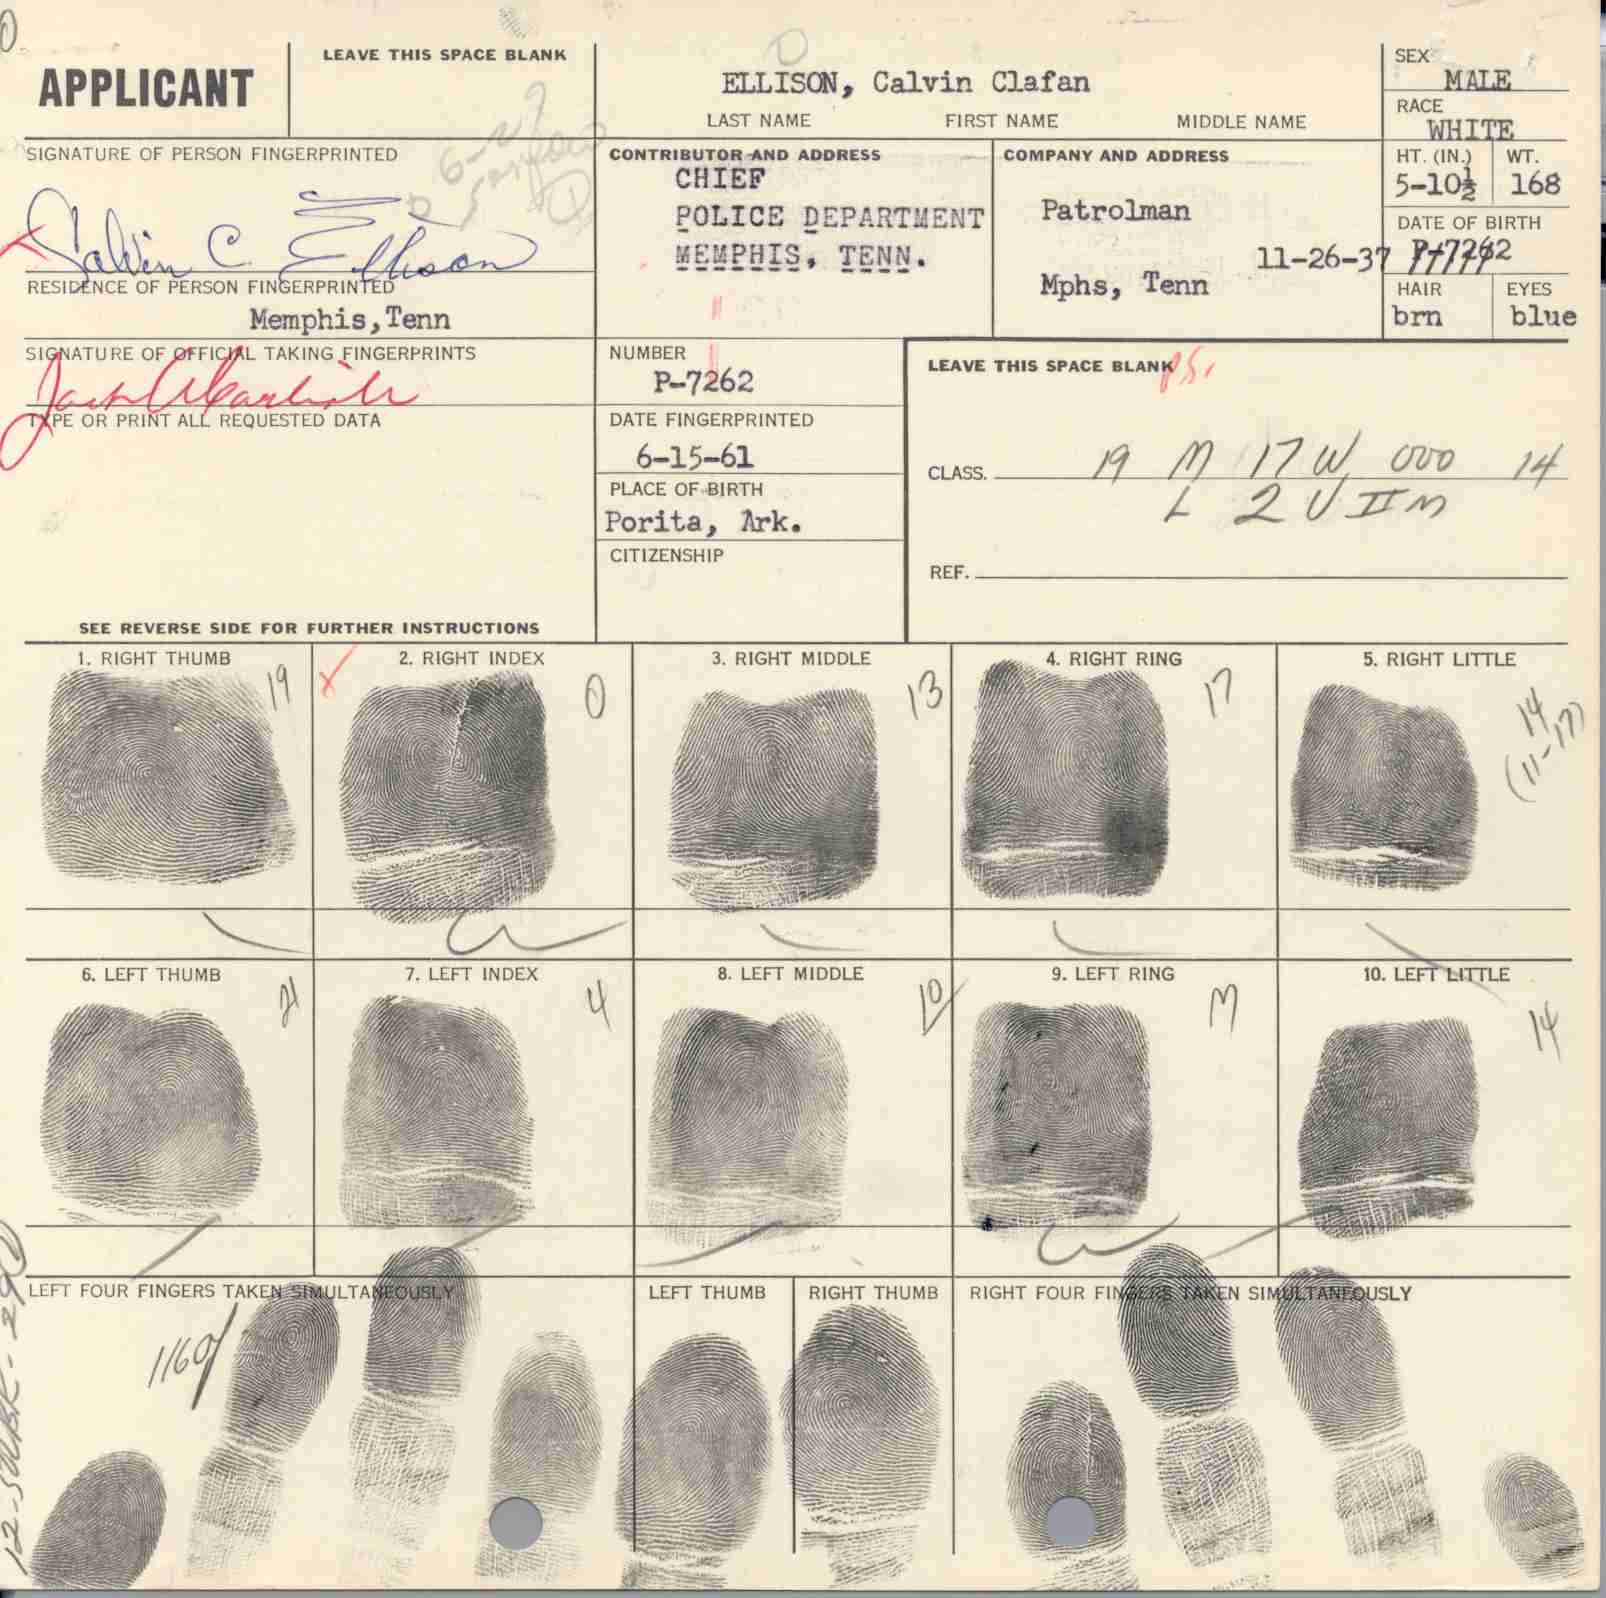 APPLICANT
LEAVE THIS SPACE BLANK
ELLISON, Calvin Clafan
LAST NAME FIRST NAME MIDDLE NAME
SEX
MALE
RACE
WHITE
SIGNATURE OF PERSON FINGERPRINTED
Calvin C. Ellison
CONTRIBUTOR AND ADDRESS
CHIEF
POLICE DEPARTMENT
MEMPHIS, TENN.
COMPANY AND ADDRESS
Patrolman
Mphs, Tenn
HT. (IN.) WT.
5-10½ 168
DATE OF BIRTH
11-26-37 P-7262
HAIR EYES
brn blue
RESIDENCE OF PERSON FINGERPRINTED
Memphis,Tenn
SIGNATURE OF OFFICIAL TAKING FINGERPRINTS
TYPE OR PRINT ALL REQUESTED DATA
NUMBER
P-7262
DATE FINGERPRINTED
6-15-61
PLACE OF BIRTH
Porita, Ark.
CITIZENSHIP
LEAVE THIS SPACE BLANK
CLASS. 19 M 17 W 000 14
L 2 U II M
REF.
SEE REVERSE SIDE FOR FURTHER INSTRUCTIONS
1. RIGHT THUMB 19
2. RIGHT INDEX 0
3. RIGHT MIDDLE 13
4. RIGHT RING 17
5. RIGHT LITTLE 14
(11-17)
6. LEFT THUMB 21
7. LEFT INDEX 4
8. LEFT MIDDLE 10
9. LEFT RING M
10. LEFT LITTLE 14
LEFT FOUR FINGERS TAKEN SIMULTANEOUSLY
1160
LEFT THUMB
RIGHT THUMB
RIGHT FOUR FINGERS TAKEN SIMULTANEOUSLY